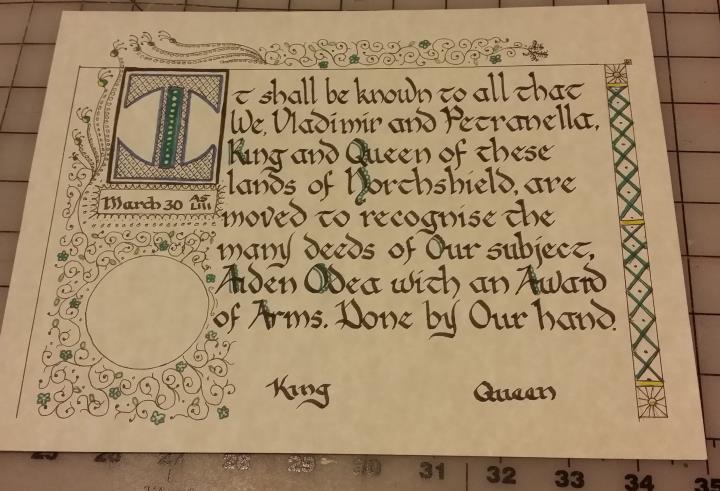 It shall be known to all that
We, Vladimir and Petranella,
King and Queen of these
lands of Northshield, are
moved to recognise the
many deeds of Our subject,
Aiden ODea with an Award
of Arms. Done by Our hand.
March 30 AS LIII
King Queen
25 26 27 28 29 30 31 32 33 34 35